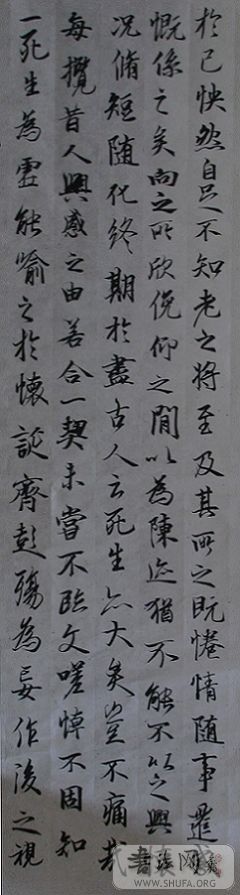 於已怏然自足不知老之将至及其所之既惓情随事遷
慨係之矣向之所欣俛仰之間以為陳迹猶不能不以之興
況脩短随化終期於盡古人云死生亦大矣豈不痛哉
每攬昔人興感之由善合一契未嘗不臨文嗟悼不固知
一死生為虛能喻之於懷誕齊彭殤為妄作後之視
書法网
WWW.SHUFA.ORG